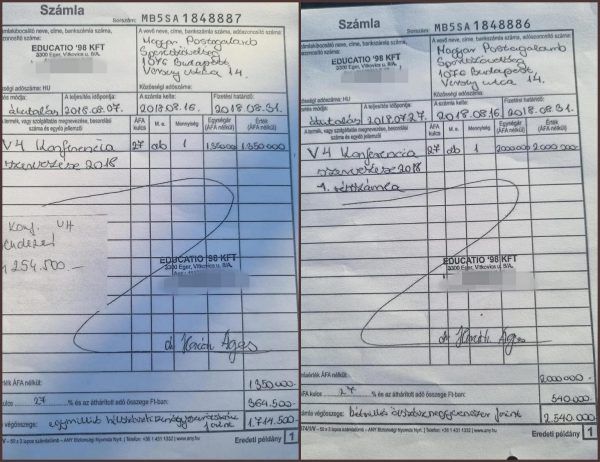 Számla
Sorszám: MB5SA1848887
számlakibocsátó neve, címe, bankszámla száma,
adóazonosító száma:
A vevő neve, címe, bankszámla száma, adóazonosító száma:
EDUCATIO '98 KFT
3300 Eger, Vitkovics u. 8/A.
Magyar Postagalamb
Sportszövetség
1076 Budapest,
Verseny utca 14.
Közösségi adószáma: HU
Közösségi adószáma:
módja:
A teljesítés időpontja:
A számla kelte:
Fizetési határidő:
átutalás
2018.08.07.
2018.08.16.
2018.08.31.
A termék, vagy szolgáltatás megnevezése, besorolási
száma és egyéb jellemzői
ÁFA kulcs
M. e.
Mennyiség
Egységár (ÁFA nélkül)
Érték (ÁFA nélkül)
V4 Konferencia 27 db 1 1350000 1.350.000
szervezése 2018
Konf. VH
254.500.-
EDUCATIO '98 KFT
3300 Eger, Vitkovics u. 8/A.
dr. Áges
érték ÁFA nélkül:
1350000.-
kulcs: 27 % és az áthárított adó összege Ft-ban:
364.500.-
számla végösszege:
1.714.500
50 x 3 lapos számlatömb – ANY Biztonsági Nyomda Nyrt. | Telefon: +36 1 431 1332 | www.any.hu
Eredeti példány 1
Számla
Sorszám: MB5SA1848886
számlakibocsátó neve, címe, bankszámla száma,
adóazonosító száma:
A vevő neve, címe, bankszámla száma, adóazonosító száma:
EDUCATIO '98 KFT
3300 Eger, Vitkovics u. 8/A.
Magyar Postagalamb
Sportszövetség
1076 Budapest,
Verseny utca 14.
Közösségi adószáma: HU
Közösségi adószáma:
módja:
A teljesítés időpontja:
A számla kelte:
Fizetési határidő:
átutalás
2018.07.27.
2018.08.16.
2018.08.31.
A termék, vagy szolgáltatás megnevezése, besorolási
száma és egyéb jellemzői
ÁFA kulcs
M. e.
Mennyiség
Egységár (ÁFA nélkül)
Érték (ÁFA nélkül)
V4 Konferencia 27 db 1 2000000 2.000.000
szervezése 2018
1. részszámla
EDUCATIO '98 KFT
3300 Eger, Vitkovics u. 8/A.
dr. Áges
számlaérték ÁFA nélkül:
2000000.-
kulcs: 27 % és az áthárított adó összege Ft-ban:
540.000.-
számla végösszege:
2.540.000
50 x 3 lapos számlatömb – ANY Biztonsági Nyomda Nyrt. | Telefon: +36 1 431 1332 | www.any.hu
Eredeti példány 1